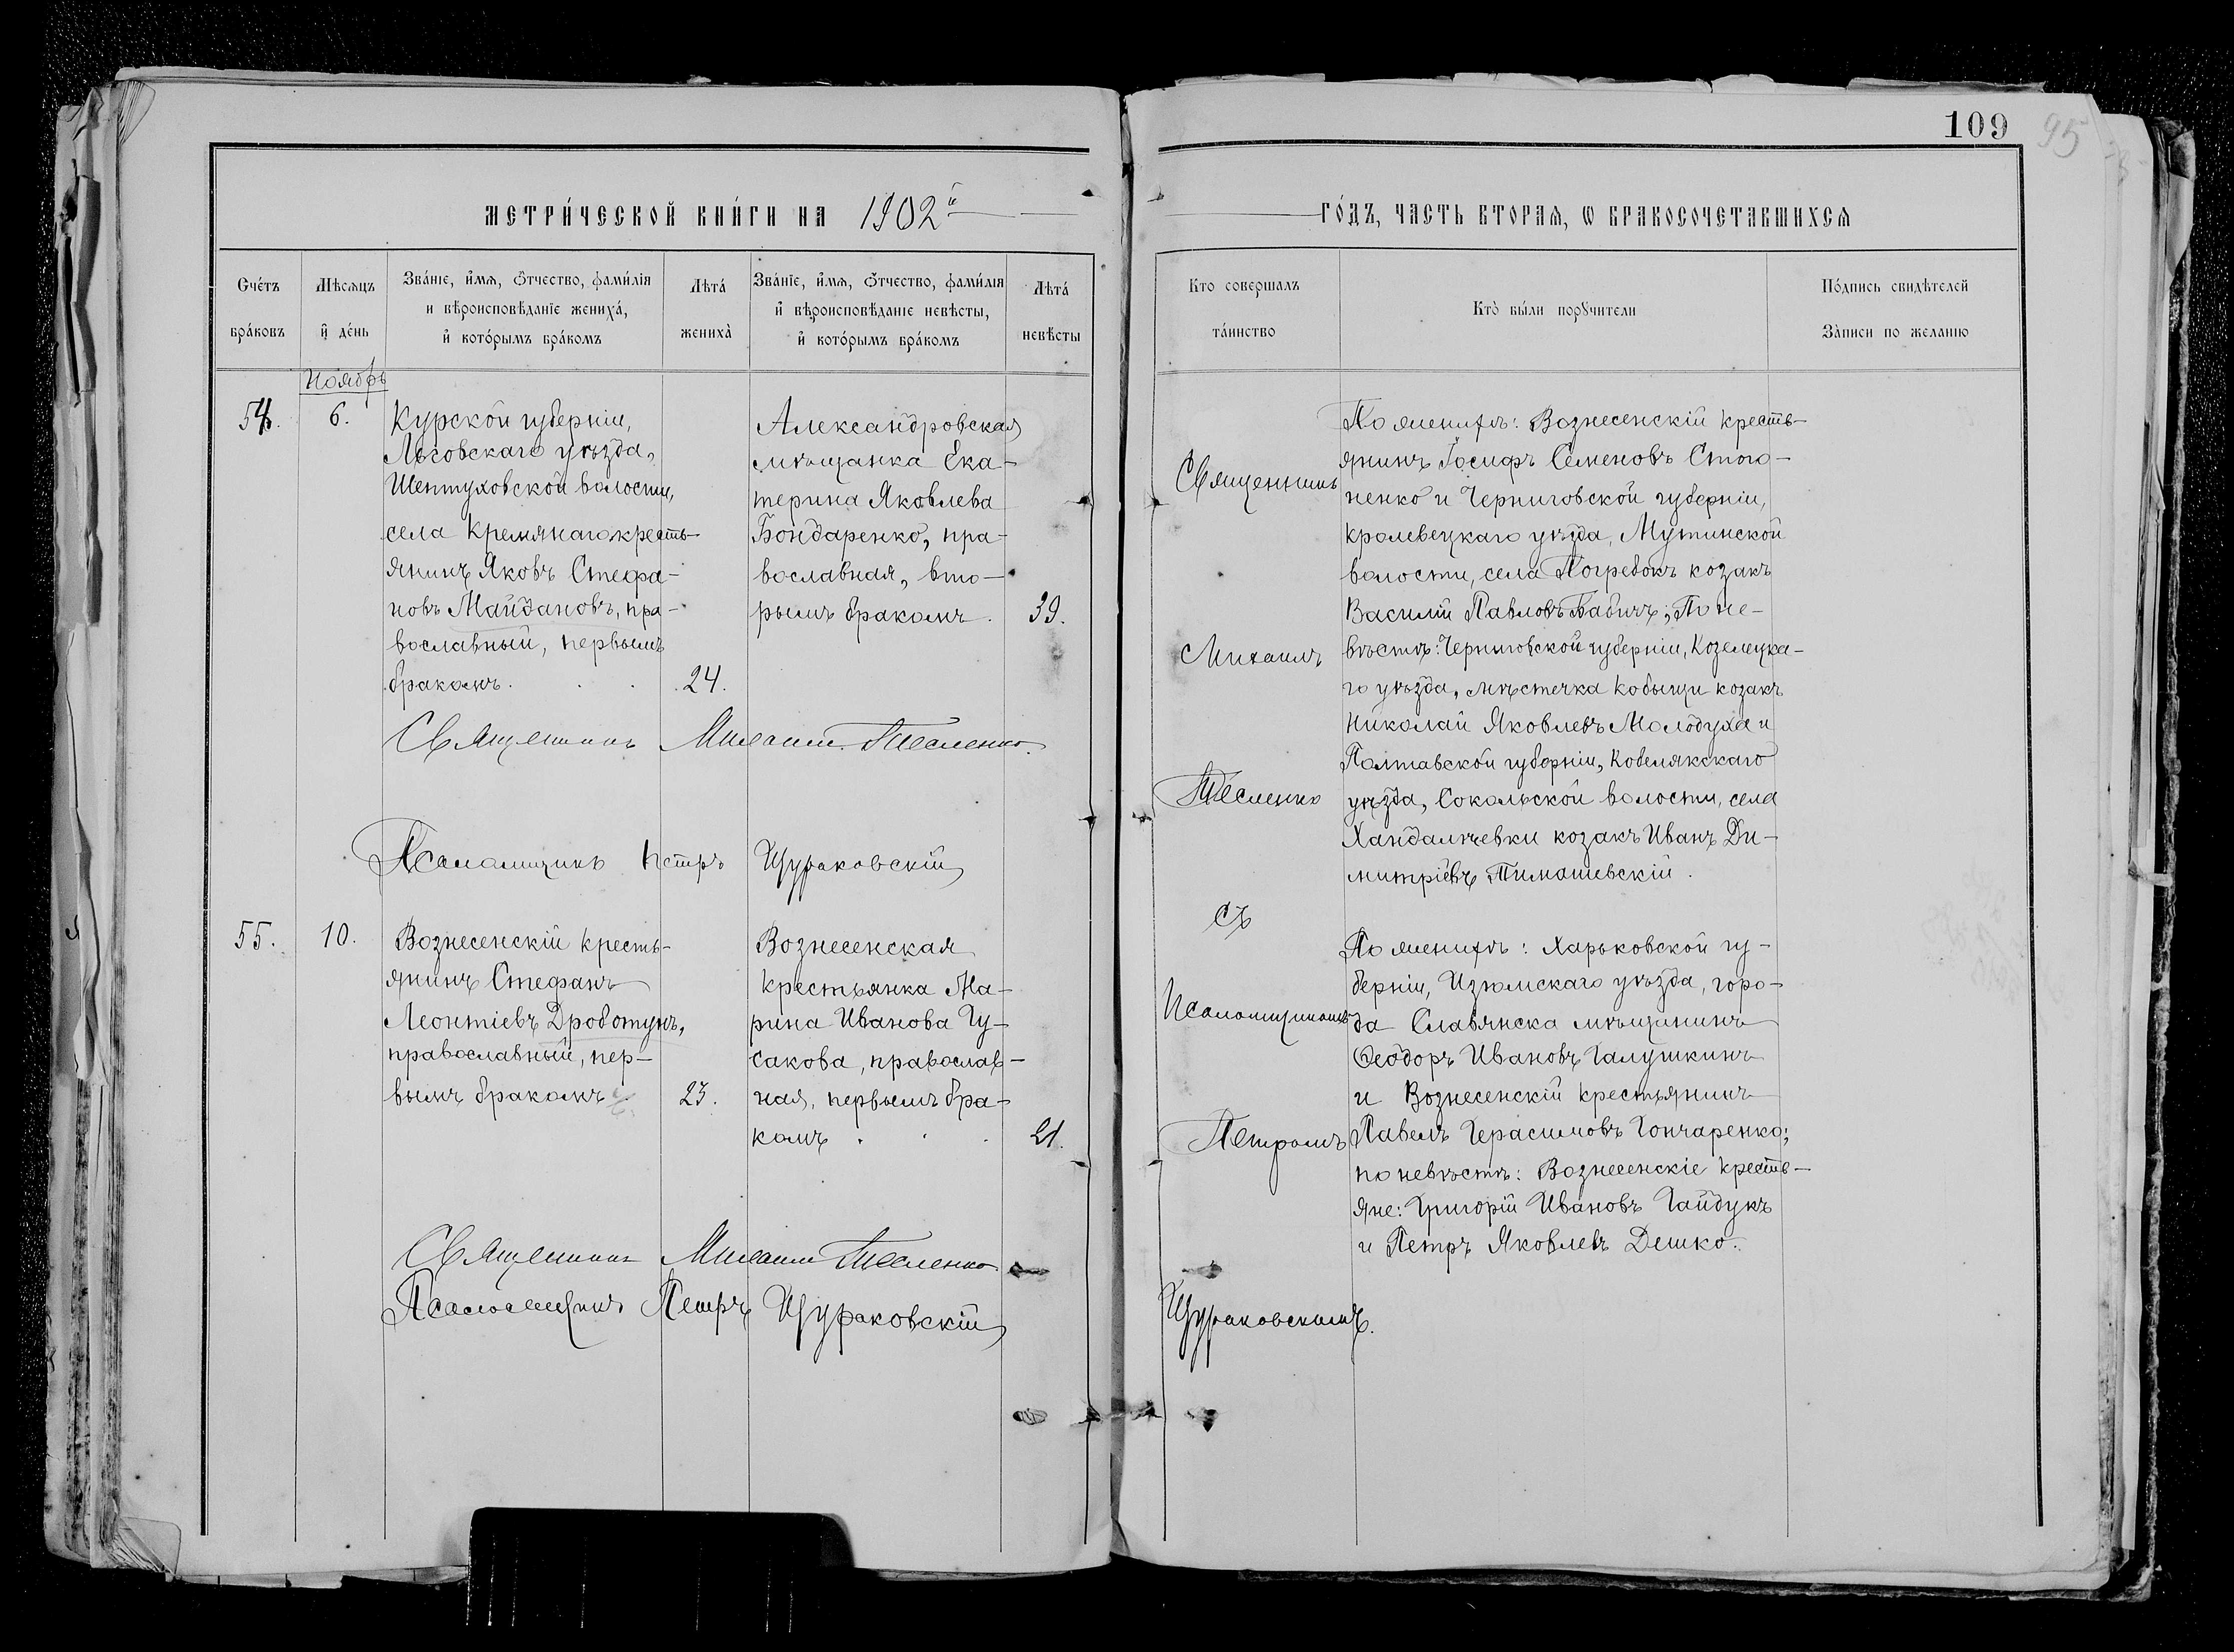 109
95
МЕТРИ́ЧЕСКОЙ КНИ́ГИ НА 1902й
ГО́ДЪ, ЧАСТЬ ВТОРАѦ, Ѡ БРАКОСОЧЕТАВШИХСѦ
Сче́тъ бра́ковъ
Мѣсѧцъ и҆ де́нь
Зва́нїе, и҆́мѧ, ѻ҆́тчество, фами́лїѧ
и вѣроисповѣ́данїе жениха́,
и҆ кото́рымъ бра́комъ
Лѣта́ жениха̀
Зва́нїе, и҆́мѧ, ѻ҆́тчество, фами́лїѧ
и҆ вѣроисповѣ́данїе невѣ́сты,
и҆ кото́рымъ бра́комъ
Лѣта́ невѣ́сты
Кто совершалъ та́инство
Кто̀ бы́ли порꙋчители
По́дпись свидѣ́телей
За̀писи по желанїю
Ноябрь
54.
6.
Курской губерніи,
Льговскаго уѣзда,
Шептуховской волости,
села Кремянаго кресть-
янинъ Яковъ Стефа-
новъ Майдановъ, пра-
вославный, первымъ
бракомъ.
24.
Александровская
мѣщанка Ека-
терина Яковлева
Бондаренко, пра-
вославная, вто-
рымъ бракомъ.
39.
Священникъ Михаилъ Тесленко.
Псаломщикъ Петръ Щураковскій
55.
10.
Вознесенскій кресть-
янинъ Стефанъ
Леонтіевъ Дроботунъ,
православный, пер-
вымъ бракомъ
23.
Вознесенская
крестьянка Ма-
рина Иванова Гу-
сакова, православ-
ная, первымъ бра-
комъ
21.
Священникъ Михаилъ Тесленко
Псаломщикъ Петръ Щураковскій
Священникъ
Михаилъ
Тесленко
съ
Псаломщикомъ
Петромъ
Щураковскимъ.
По женихѣ: Вознесенскій кресть-
янинъ Іосифъ Семеновъ Стого-
ненко и Черниговской губерніи,
Кролевецкаго уѣзда, Мутинской
волости, села Погребокъ козакъ
Василій Павловъ Бабичъ; По не-
вѣстѣ: Черниговской губерніи, Козелецка-
го уѣзда, мѣстечка Кобыжи козакъ
Николай Яковлевъ Молодуха и
Полтавской губерніи, Кобелякскаго
уѣзда, Сокольской волости, села
Хандалѣевки козакъ Иванъ Ди-
митріевъ Тимошевскій.
По женихѣ: Харьковской гу-
берніи, Изюмскаго уѣзда, горо-
да Славянска мѣщанинъ
Ѳеодоръ Ивановъ Галушкинъ
и Вознесенскій крестьянинъ
Павелъ Герасимовъ Гончаренко;
по невѣстѣ: Вознесенскіе кресть-
яне: Григорій Ивановъ Гайдукъ
и Петръ Яковлевъ Дешко.